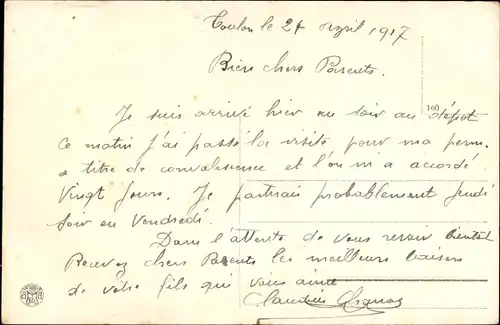 Toulon le 24 avril 1917
Biens chers Parents.
Je suis arrivé hier au soir au dépôt
160
ce matin j'ai passé la visite pour ma perm
a titre de convalescence et l'on m'a accordé
Vingt jours. Je partirais probablement jeudi
soir ou Vendredi.
Dans l'attente de vous revoir bientôt
Recevez chers Parents les meilleurs baisers
de votre fils qui vous aime
Claudius